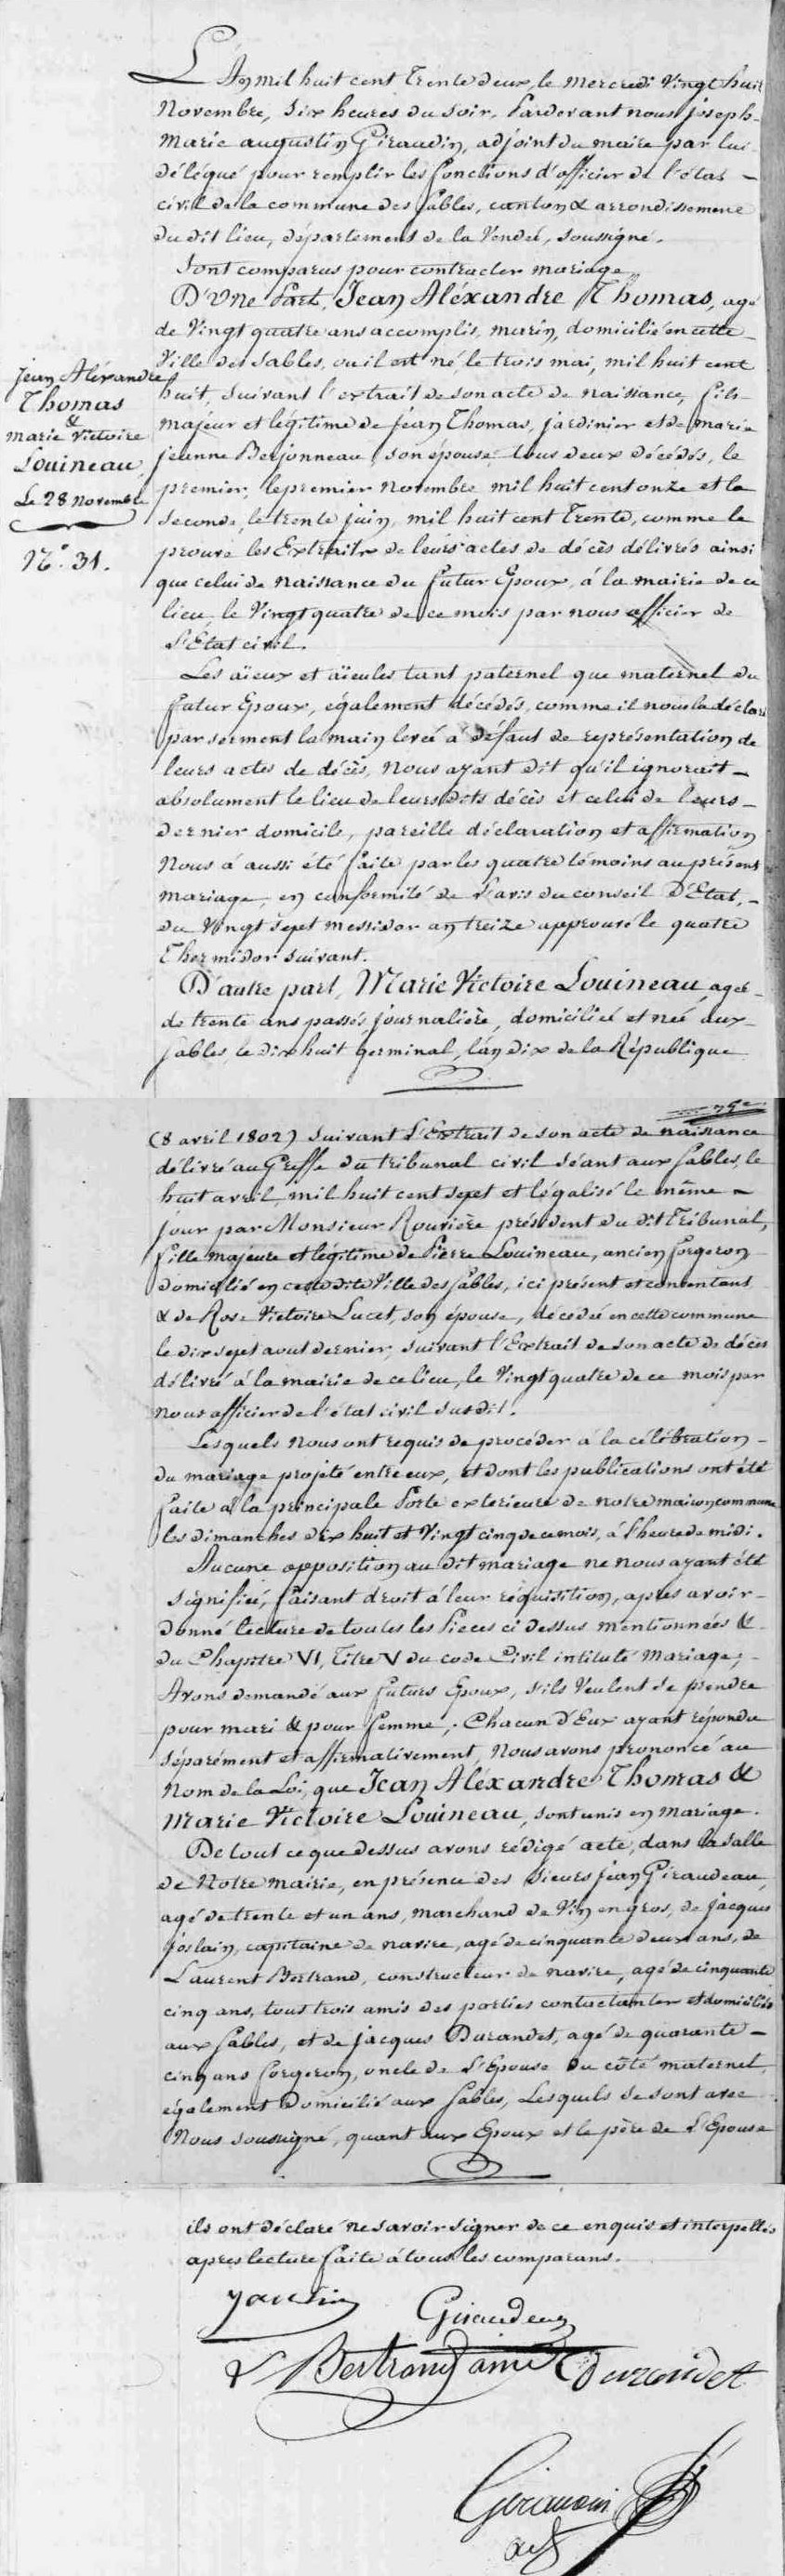 L'An mil huit cent trente deux, le mercredi Vingt huit
Novembre, Six heures du soir, Pardevant nous joseph-
Marie augustin Giraudin, adjoint du maire par lui
délégué pour remplir les fonctions d'officier de l'état -
civil de la commune des sables, canton & arrondissement
du dit lieu, département de la Vendeé, soussigné.
Sont comparus pour contracter mariage,
D'Une Part, Jean Aléxandre Thomas, agé
de Vingt quatre ans accomplis, marin, domicilié en cette
Ville des sables, ou il est né le trois mai, mil huit cent
huit, suivant l'extrait de son acte de naissance, fils-
majeur et légitime de jean Thomas, jardinier et de marie
jeanne Berjonneau, son épouse, tous deux décédés, le
premier, le premier novembre mil huit cent onze et la
seconde, le trente juin, mil huit cent trente, comme le
prouve les Extraits de leurs actes de décès délivrés ainsi
que celui de naissance du futur Epoux, à la mairie de ce
lieu, le Vingt quatre de ce mois par nous officier de
l'Etat civil.
Jean Aléxandre
Thomas
&
marie Victoire
Louineau,
Le 28 Novembre
N.° 31.
Les aïeux et aïeules tant paternel que maternel du
futur Epoux, également décédés, comme il nous la déclaré
par serment la main levée à défaut de représentation de
leurs actes de décès, Nous ayant dit qu'il ignorait -
absolument le lieu de leurs dits décès et celui de leurs -
dernier domicile, pareille déclaration et affirmation
Nous à aussi été faite par les quatre témoins au présent
mariage, en conformité de l'avis du conseil D'Etat, -
du Vingt sept messidor an treize approuvé le quatre
Thermidor suivant.
D'autre part, Marie Victoire Louineau, ageé -
de trente ans passés, journalière, domicilieé et neé aux-
sables, le dix huit germinal, l'an dix de la République
(8 avril 1802) suivant l'Extrait de son acte de naissance
délivré au Greffe du tribunal civil séant aux sables, le
huit avril, mil huit cent sept et légalisé le même -
jour par Monsieur Rouvière président du dit Tribunal,
fille majeure et légitime de Pierre Louineau, ancien forgeron
domicilié en cette dite Ville des sables, ici présent et consentant
& de Rose Victoire Lucet, son épouse, décédeé en cette commune
le dix sept aout dernier, suivant l'Extrait de son acte de décès
délivré à la mairie de ce lieu, le Vingt quatre de ce mois par
nous officier de l'état civil susdit.
Lesquels nous ont requis de procéder à la célébration -
du mariage projeté entre eux, et dont les publications ont été
faite à la principale Porte exterieure de notre maison commune
les dimanches dix huit et Vingt cinq de ce mois, à l'heure de midi.
Aucune opposition au dit mariage ne nous ayant été
signifieé, faisant droit à leur réquisition, après avoir -
donné lecture de toutes les Pieces ci dessus mentionnées &
du Chapitre VI, Titre V du code Civil intitulé Mariage; -
Avons demandé aux futurs Epoux, s'ils Veulent se prendre
pour mari & pour femme; Chacun d'Eux ayant répondu
séparément et affirmativement, Nous avons prononcé au
Nom de la Loi, que Jean Aléxandre Thomas &
Marie Victoire Louineau, sont unis en mariage.
De tout ce que dessus avons rédigé acte, dans la salle
de Notre mairie, en présence des sieurs jean Giraudeau,
agé de trente et un ans, marchand de Vin en gros, de jacques
joslain, capitaine de navire, agé de cinquante deux ans, de
Laurent Bertrand, constructeur de navire, agé de cinquante
cinq ans, tous trois amis des parties contractantes et domiciliés
aux sables, et de jacques Durandet, agé de quarante -
cinq ans forgeron, oncle de l'Epouse du côté maternel,
également domicilié aux sables, Lesquels se sont avec
Nous soussigné, quant aux Epoux et le père de l'Epouse
ils ont déclaré ne savoir signer de ce enquis et interpellés
après lecture faite à tous les comparans.
Giraudeau
L Bertrand ainé Durandet
Giraudin
adj